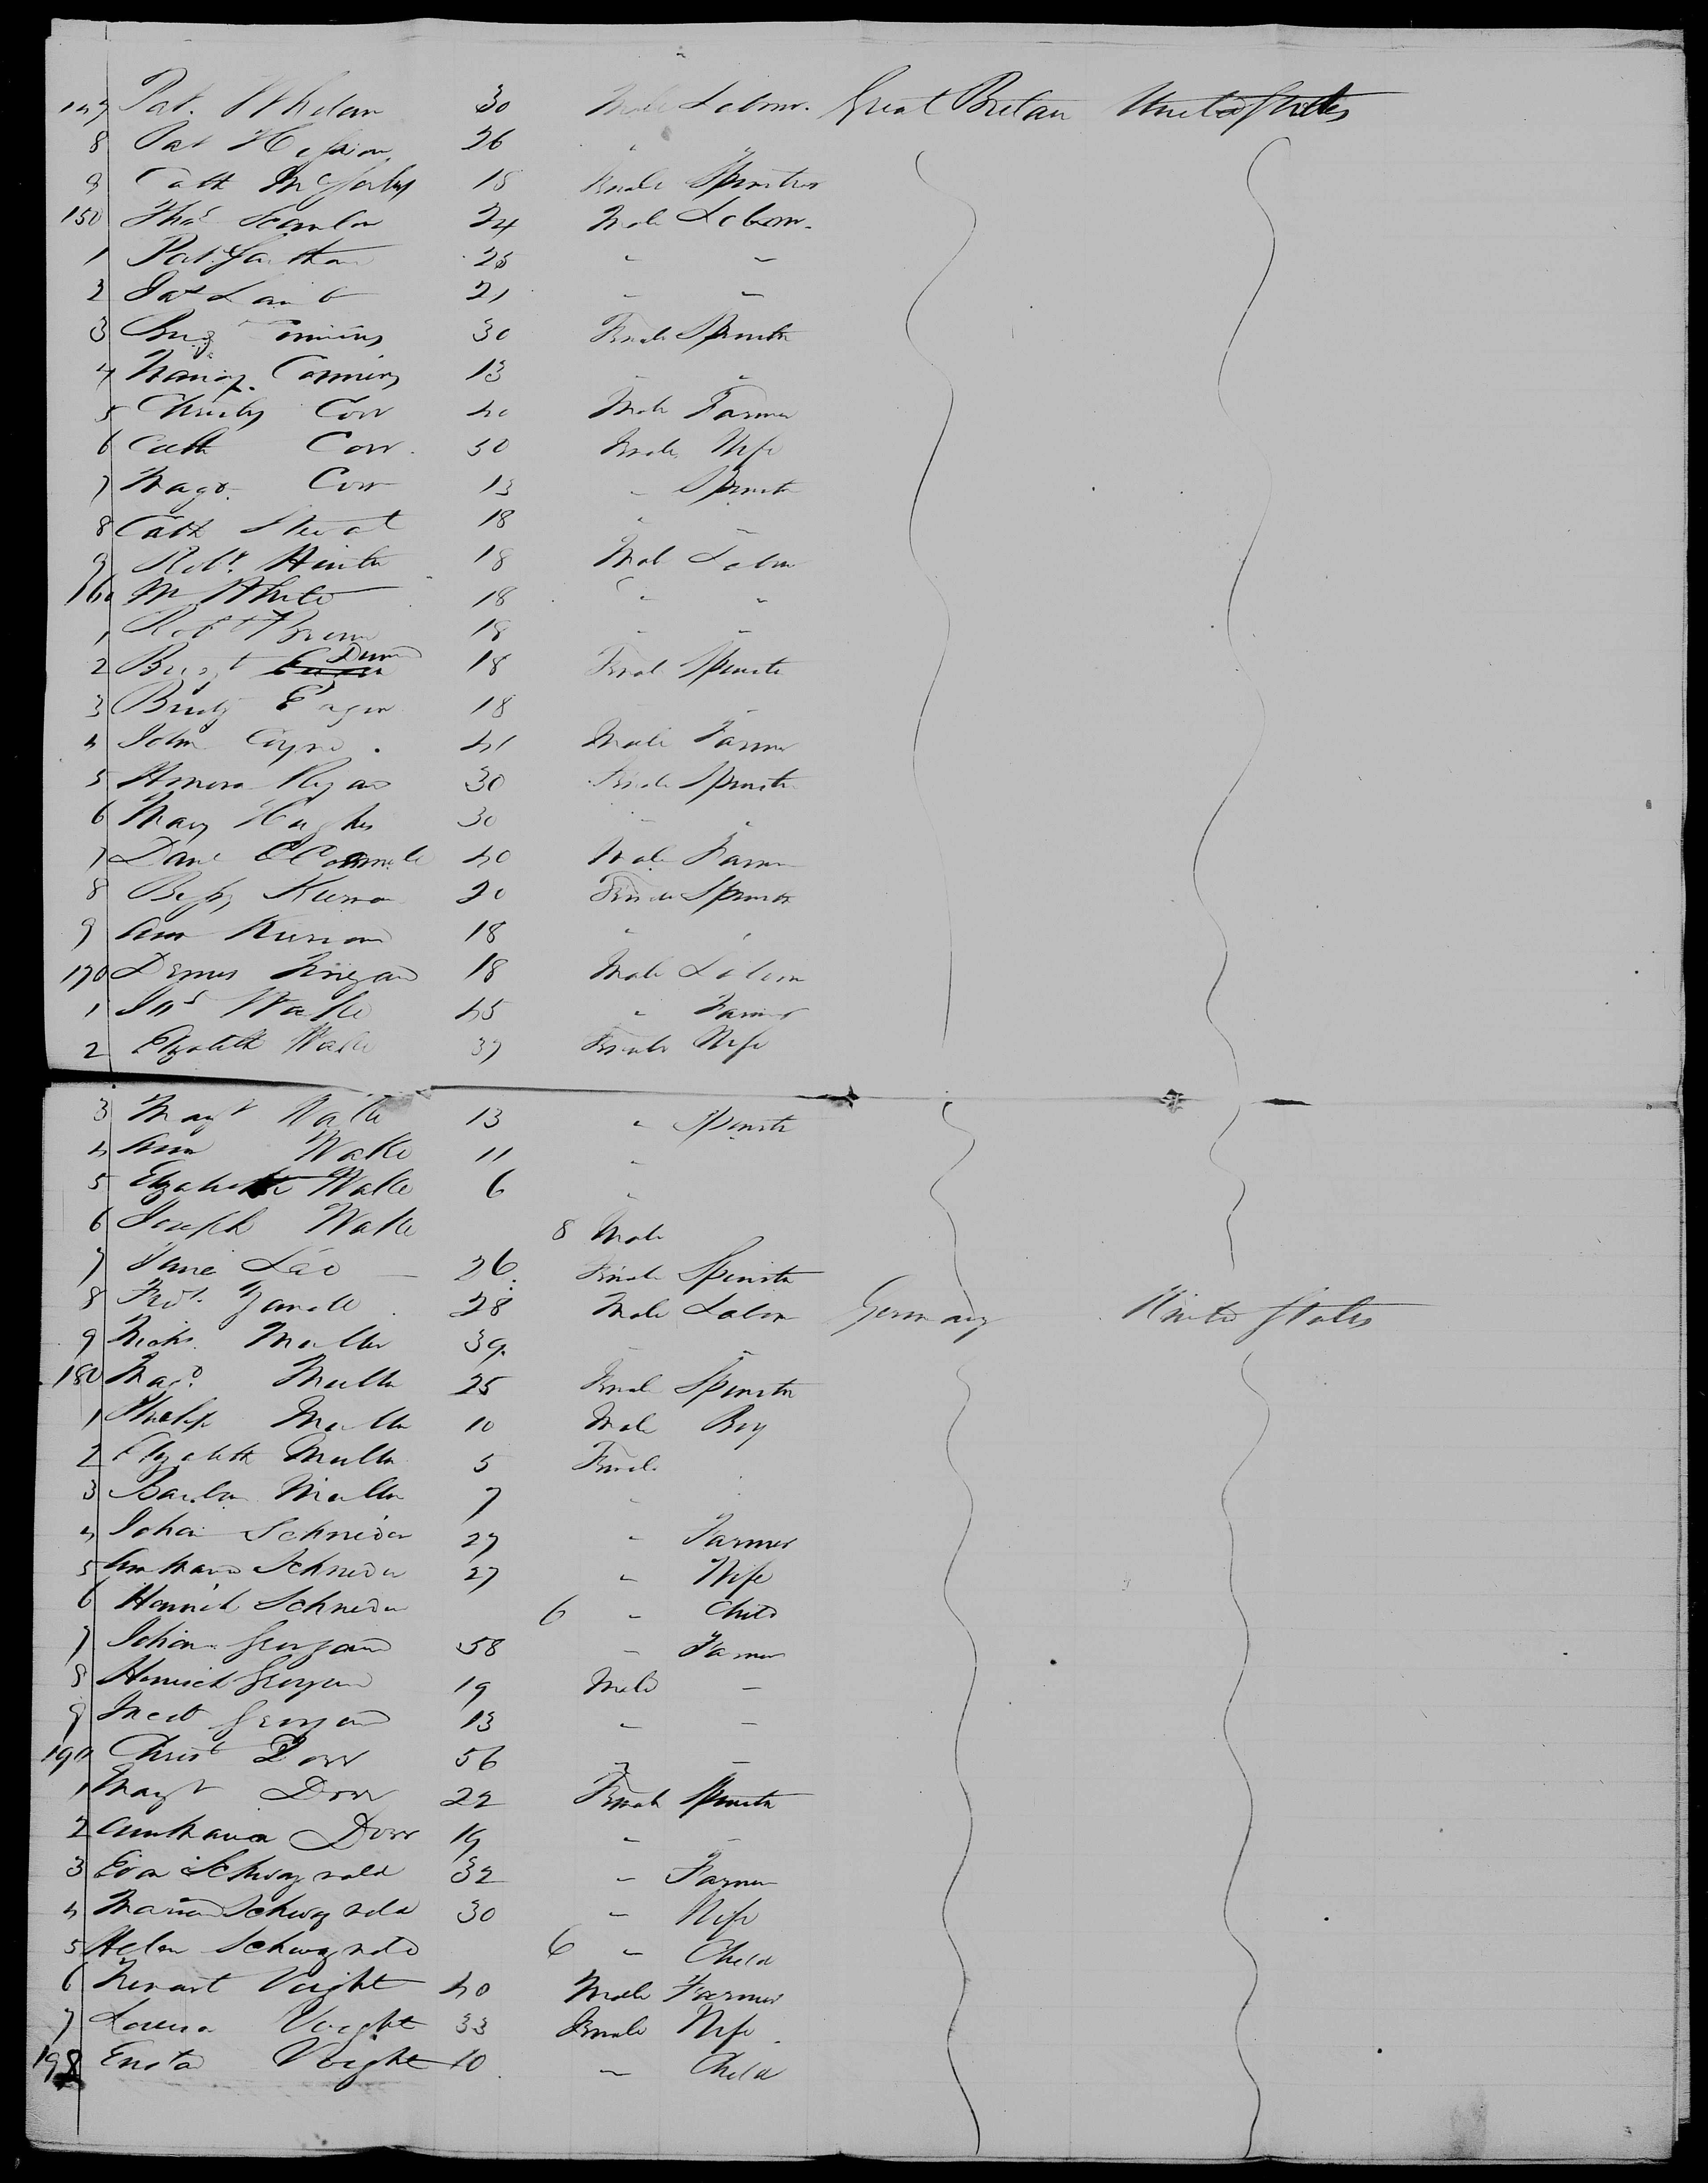 147 Pat. Whelan 30 Male Labour. Great Britain United States
8 Pat Hession 26 " "
9 Cath 18 Female Spinster
150 Thos Scanlon 24 Male Labour.
1 Pat. 25 " "
2 Jas Lamb 21 " "
3 Brigt Commins 30 Female Spinster
4 Nancy Commins 13 " "
5 Christy Corr 40 Male Farmer
6 Cath Corr. 30 Female Wife
7 Magt. Corr 13 " Spinster
8 Cath Stewat 18 " "
9 Robt. Hunter 18 Male Labour
160 Wm White 18 " "
1 Robt Brown 18 " "
2 Brigt Dunn 18 Female Spinster
3 Bridg Eagen 18 "
4 John Coyne. 41 Male Farmer
5 Honora Ryan 30 Female Spinster
6 Mary Hughes 30 " "
7 Danl O'Connell 40 Male Farmer
8 Bessy Kiernan 20 Female Spinster
9 Ann Kiernan 18 " "
170 Dennis Finegan 18 Male Labour
1 Jno Walke 45 " Farmer
2 Elizabeth Walke 37 Female Wife
3 Magt Walke 13 " Spinster
4 Ann Walke 11 "
5 Elizabeth Walke 6 "
6 Joseph Walke 8 Male
7 Jane Lee 26. Female Spinster
8 Fredk. 28 Male Labour Germany United States
9 Nichs. Muller 39. " "
180 Magt. Muller 25 Female Spinster
1 Philip Muller 10 Male Boy
2 Elizabeth Muller 5 Female
3 Barbara Muller 7 "
4 Johan Schneider 27 " Farmer
5 Ann Maria Schneider 27 " Wife
6 Heinrich Schneider 6 " Child
7 Johan 58 " Farmer
8 Heinrich 19 Male "
9 13 " "
190 Christ Dorr 56 " "
1 Magt Dorr 22 Female Spinster
2 Ann Maria Dorr 19 " "
3 Eva 32 " Farmer
4 Maria 30 " Wife
5 Helen 6 " Child
6 Voight 40 Male Farmer
7 Louisa Voight 33 Female Wife.
198 Voight 10. " Child